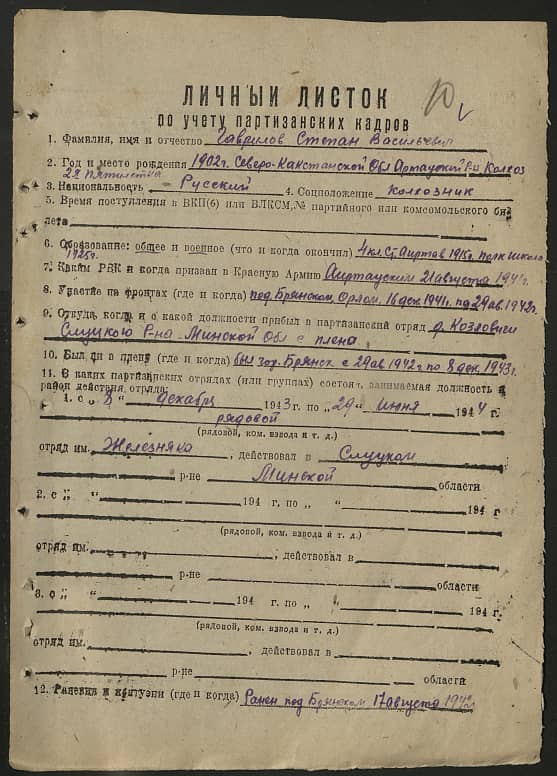 ЛИЧНЫЙ ЛИСТОК
по учету партизанских кадров
1. Фамилия, имя и отчество Гаврилов Степан Васильевич
2. Год и место рождения 1902г. Северо-Какстанской Обл Артауский Р-н Колхоз
2я Пятилетка
3. Национальность Русский 4. Соцположение колхозник
5. Время поступления в ВКП(б) или ВЛКСМ, № партийного или комсомольского би-
лета
6. Образование: общее и военное (что и когда окончил) 4 кл. С. Аиртав 1915г. Полк школа
1925г.
7. Каким РВК и когда призван в Красную Армию Аиртауским 21 августа 1941г.
8. Участие на фронтах (где и когда) под Брянском, Орлом, 16 дек 1941г. по 29 ав. 1942г.
9. Откуда, когда и с какой должности прибыл в партизанский отряд д. Козловичи
Слуцкого Р-на Минской Обл с плена
10. Был ли в плену (где и когда) был Брянск с 29 ав 1942г по 8 дек 1943г.
11. В каких партизанских отрядах (или группах) состоял, занимаемая должность и
район действия отряда:
1. с „8“ декабря 1943 г. по „29“ июня 1944 г.
рядовой
(рядовой, ком. взвода и т. д.)
отряд им. Железняка, действовал в Слуцком
р-не Минской области
2. с „ “ 194 г. по „ “ 194 г.
(рядовой, ком. взвода и т. д.)
отряд им. , действовал в
р-не области
3. с „ “ 194 г. по „ “ 194 г.
(рядовой, ком. взвода и т. д.)
отряд им. , действовал в
р-не области
12. Ранения и контузии (где и когда) Ранен под Брянском 17 августа 1942г